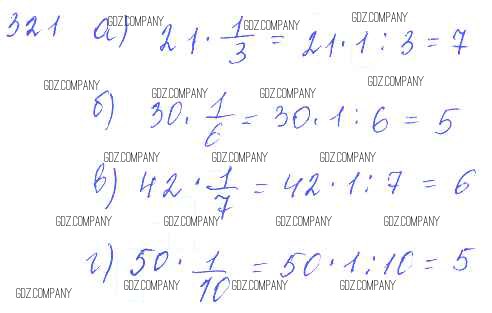 321 а) 21 · 1/3 = 21 · 1 : 3 = 7
б) 30 · 1/6 = 30 · 1 : 6 = 5
в) 42 · 1/7 = 42 · 1 : 7 = 6
г) 50 · 1/10 = 50 · 1 : 10 = 5
GDZ.COMPANY GDZ.COMPANY GDZ.COMPANY
GDZ.COMPANY GDZ.COMPANY GDZ.COMPANY GDZ.COMPANY
GDZ.COMPANY GDZ.COMPANY GDZ.COMPANY
GDZ.COMPANY GDZ.COMPANY GDZ.COMPANY GDZ.COMPANY
GDZ.COMPANY GDZ.COMPANY GDZ.COMPANY GDZ.COMPANY